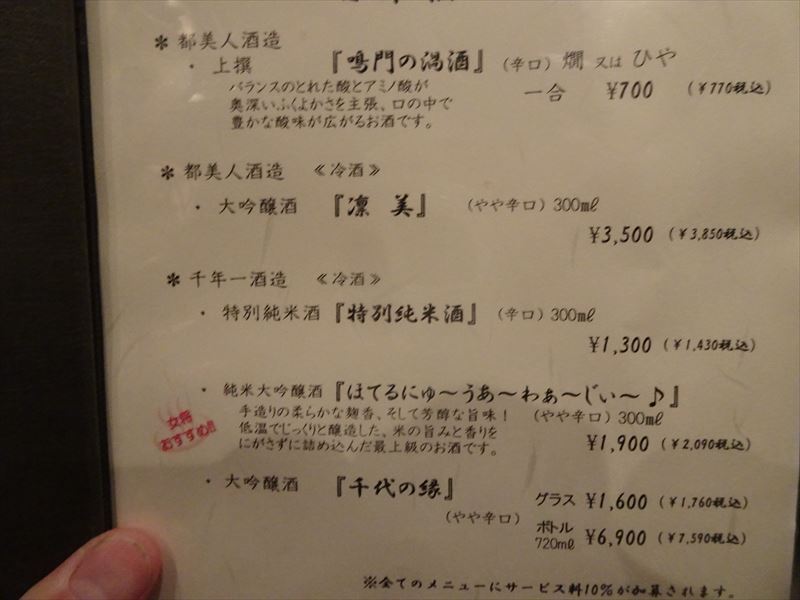 * 都美人酒造
・上撰 『鳴門の渦酒』 (辛口) 燗 又は ひや
バランスのとれた酸とアミノ酸が
奥深いふくよかさを主張、口の中で
豊かな酸味が広がるお酒です。
一合 ¥700 (¥770税込)
* 都美人酒造 《冷酒》
・大吟醸酒 『凛 美』 (やや辛口) 300㎖
¥3,500 (¥3,850税込)
* 千年一酒造 《冷酒》
・特別純米酒『特別純米酒』 (辛口) 300㎖
¥1,300 (¥1,430税込)
・純米大吟醸酒『ほてるにゅ〜うあ〜わぁ〜じぃ〜♪』
手造りの柔らかな麹香、そして芳醇な旨味！
低温でじっくりと醸造した、米の旨みと香りを
にがさずに詰め込んだ最上級のお酒です。
(やや辛口) 300㎖
¥1,900 (¥2,090税込)
女将
おすすめ!!
・大吟醸酒 『千代の縁』
(やや辛口)
グラス ¥1,600 (¥1,760税込)
ボトル
720㎖ ¥6,900 (¥7,590税込)
※全てのメニューにサービス料10%が加算されます。